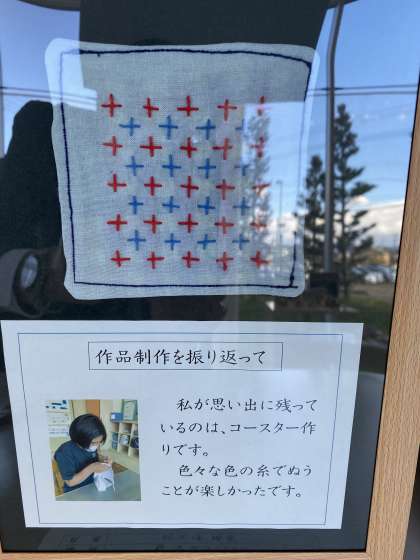 作品制作を振り返って
私が思い出に残って
いるのは、コースター作
りです。
色々な色の糸でぬう
ことが楽しかったです。